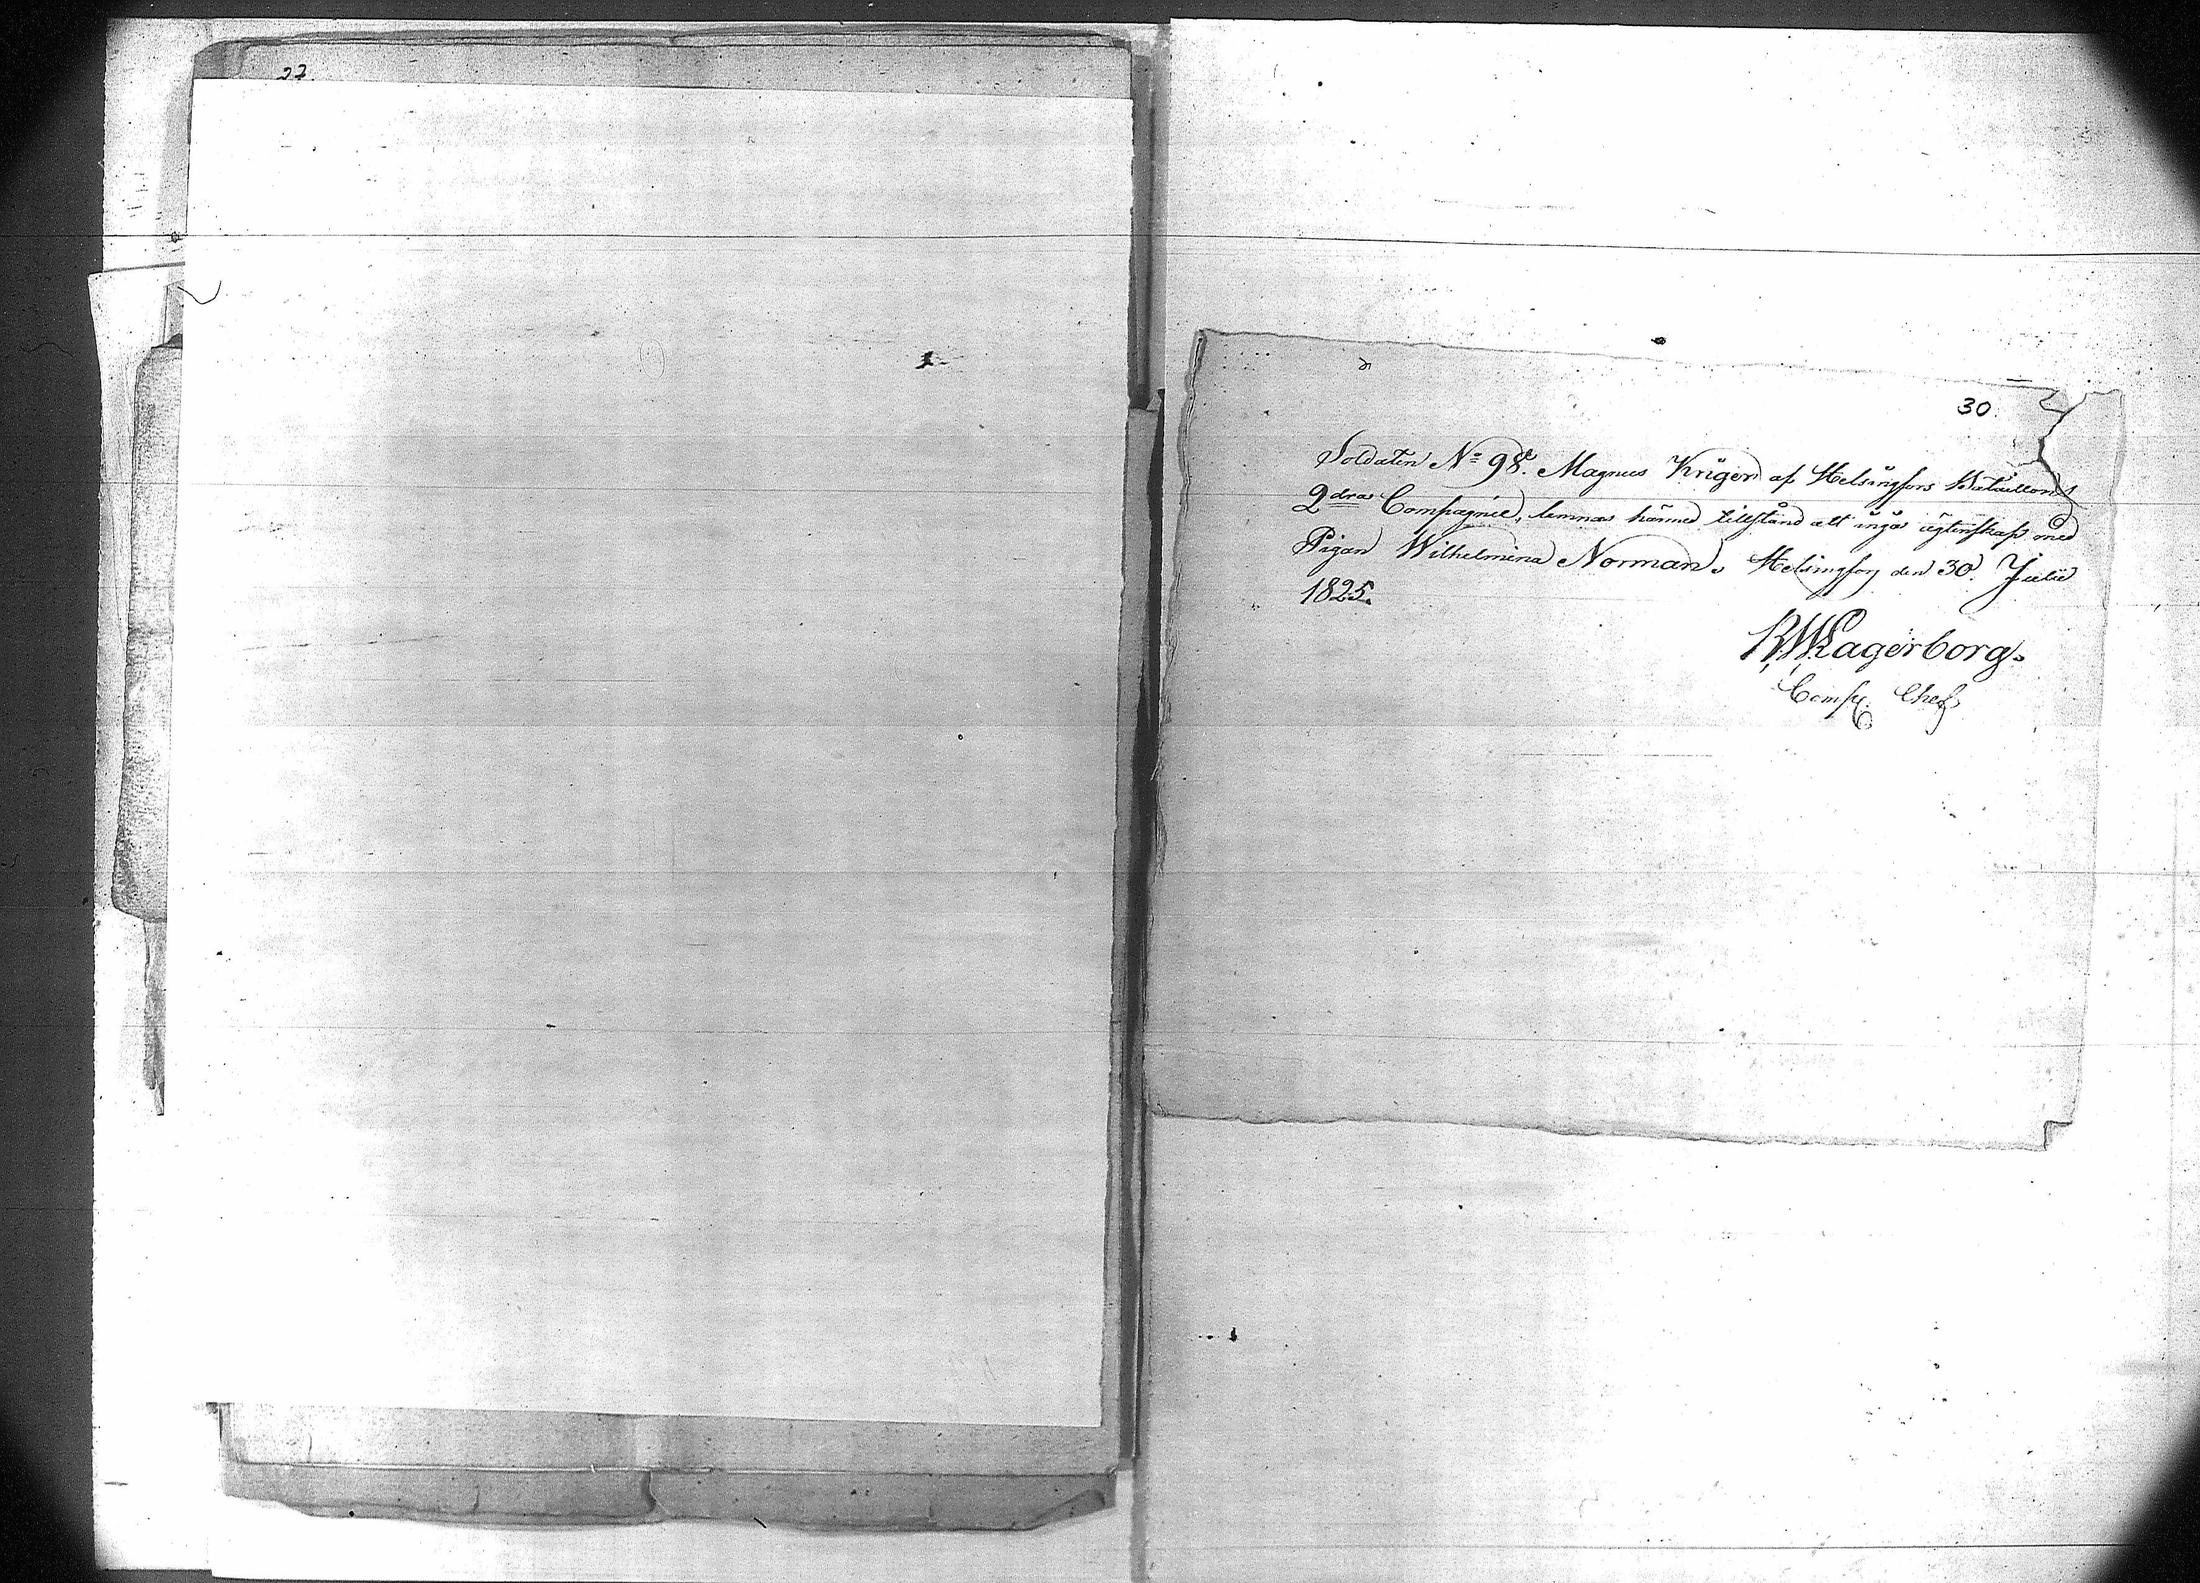 27.
30.
Soldaten No 98. Magnus Krüger af Helsingfors Bataillons
2dra Compagnie, lemnas härmed tillstånd att ingå ägtenskap med
Pigan Wilhelmina Norman. Helsingfors den 30 Julii
1825.
R W Lagerborg.
Comp. Chef